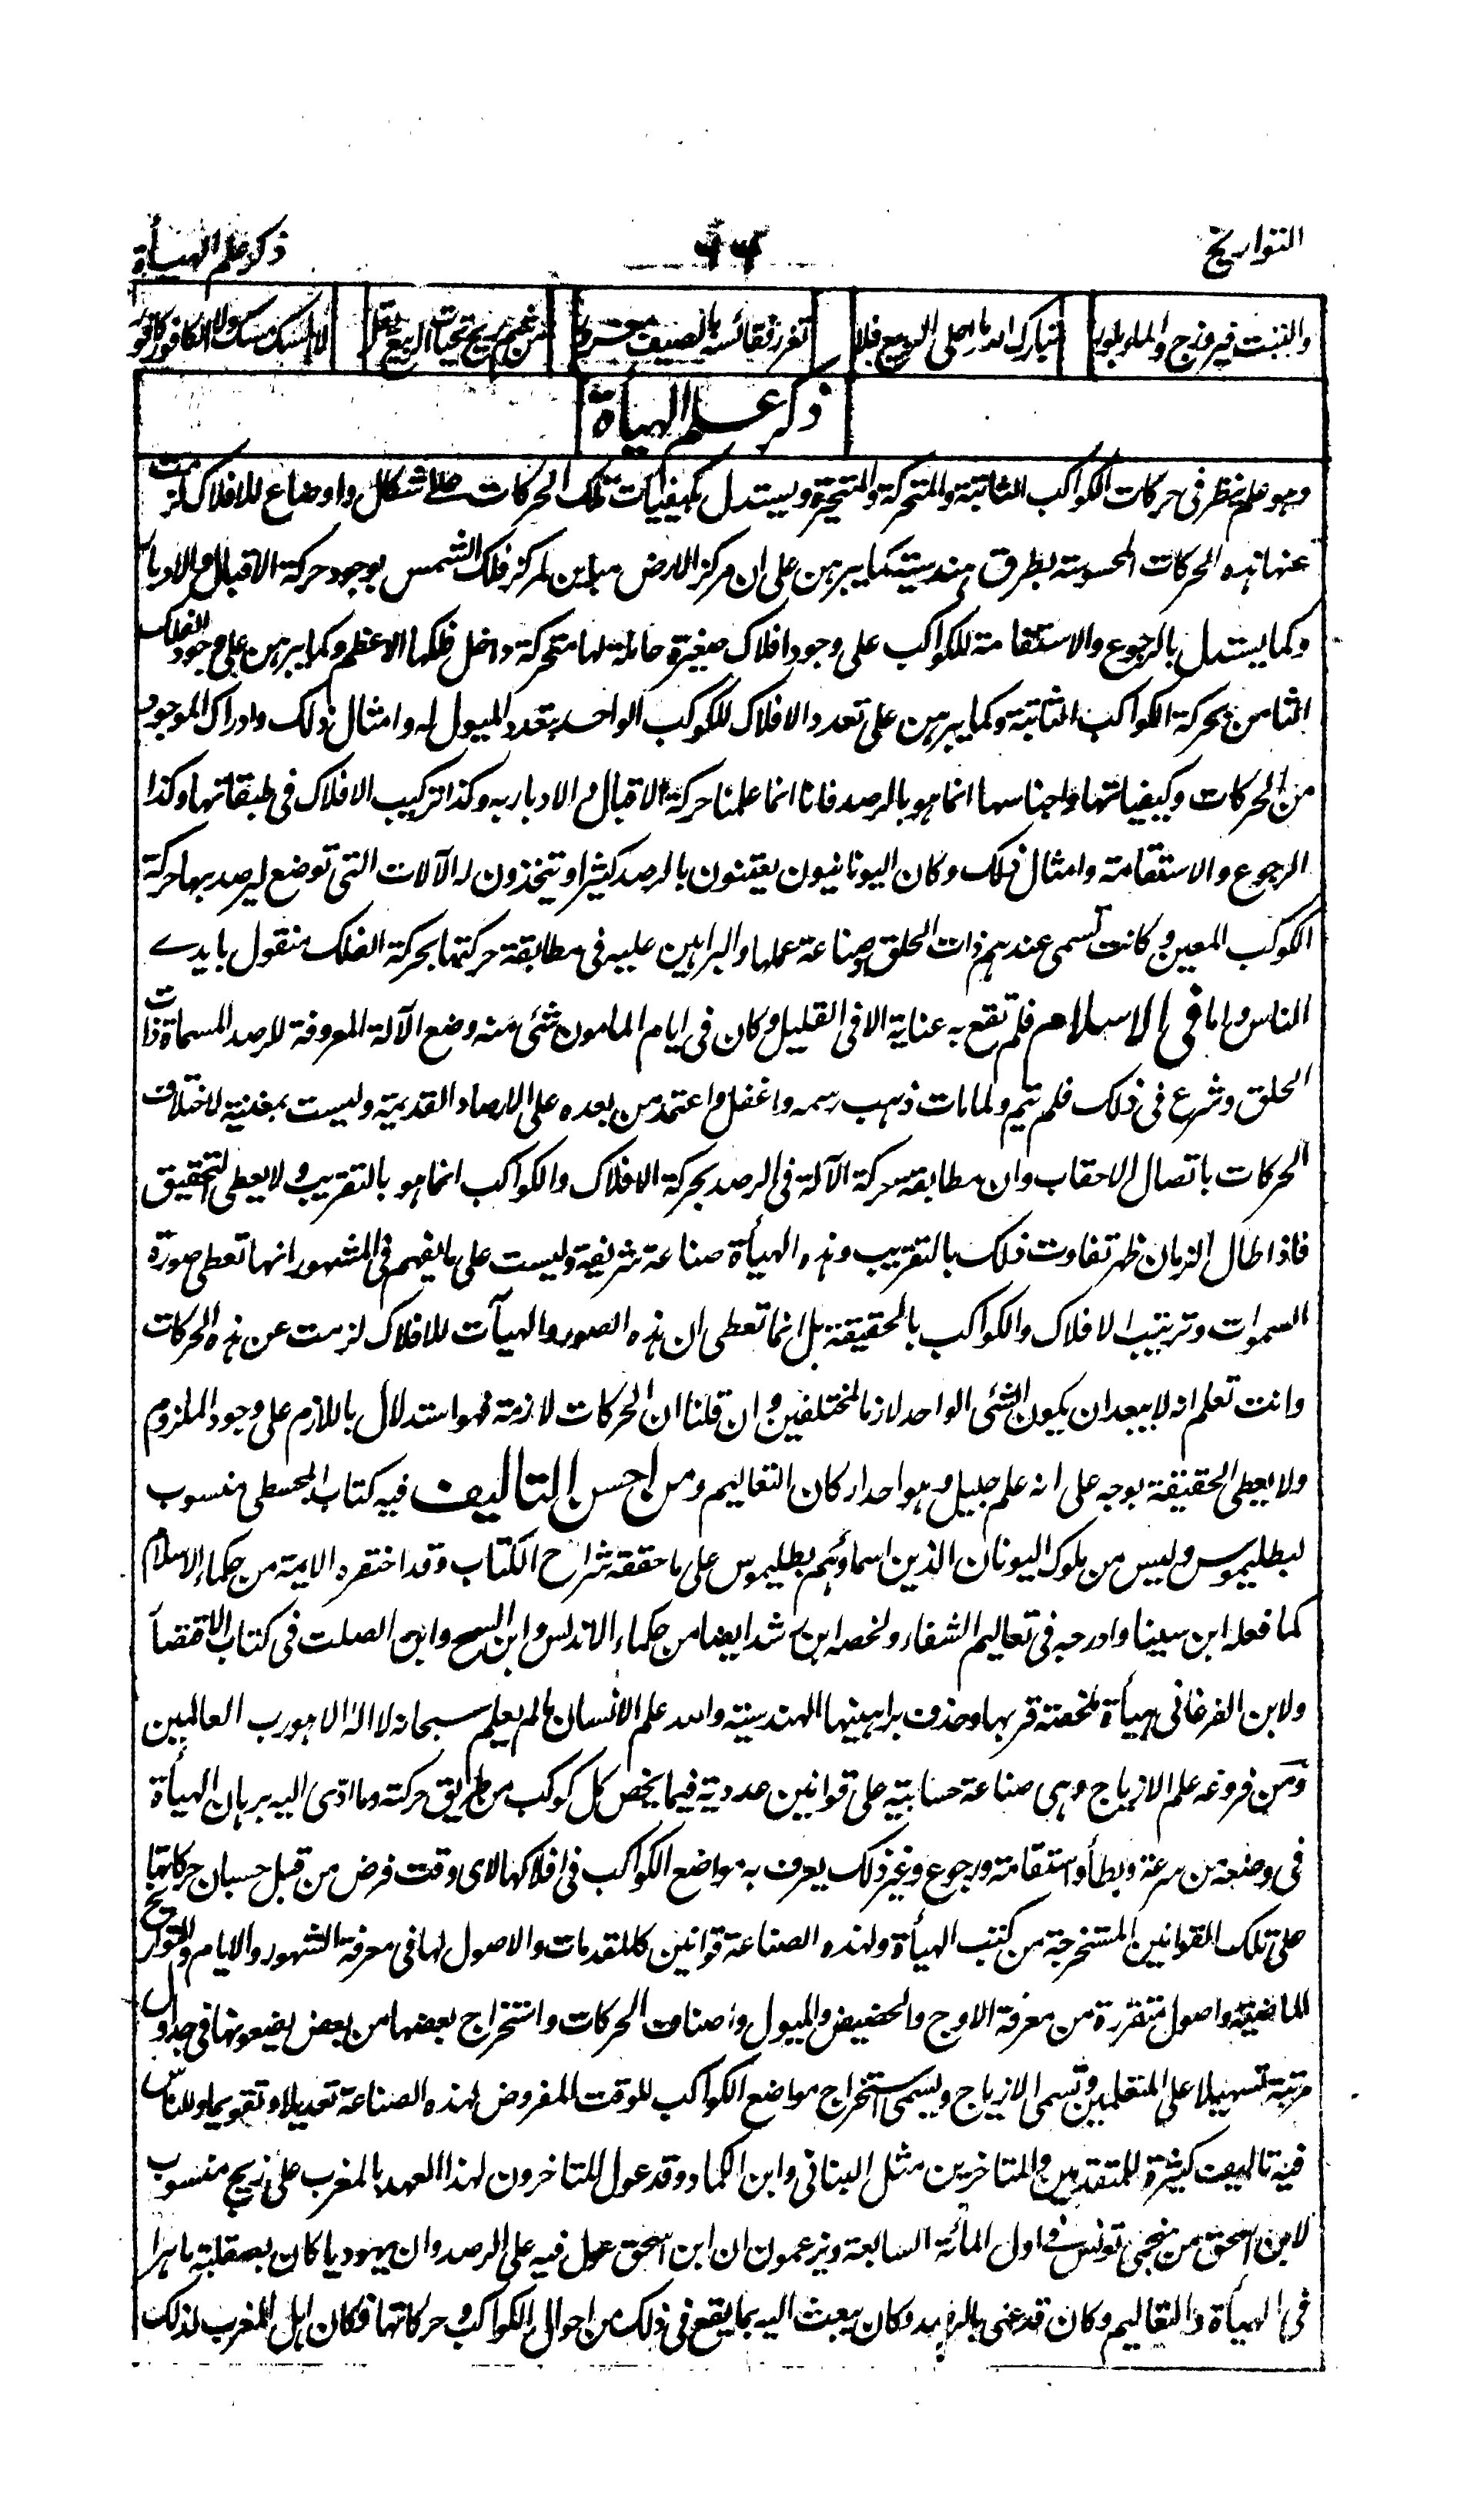 التواريخ
٦٦
ذكر علم الهيأة
والنبت فيروزج والماء بلور
تبارك الله ما احلى الربيع فلا
تغرر فقائسه بالصيف مغرور
من شم ريح تحيات الربيع يقل
لا المسك مسك ولا الكافور كافور
ذكر علم الهيأة
وهو علم ينظر فى حركات الكواكب الثابتة والمتحركة والمتحيرة ويستدل بكيفيات تلك الحركات على اشكال واوضاع للافلاك لزمت
عنها هذه الحركات المحسوسة بطرق هندسية كما يبرهن على ان مركز الارض مباين لمركز فلك الشمس بوجود حركة الاقبال والادبار
وكما يستدل بالرجوع والاستقامة للكواكب على وجود افلاك صغيرة حاملة لها متحركة داخل فلكها الاعظم وكما يبرهن على وجود الفلك
الثامن بحركة الكواكب الثابتة وكما يبرهن على تعدد الافلاك للكوكب الواحد بتعدد الميول له وامثال ذلك وادراك الموجود
من الحركات وكيفياتها واجناسها انما هو بالرصد فانا انما علمنا حركة الاقبال والادبار به وكذا تركيب الافلاك فى طبقاتها وكذا
الرجوع والاستقامة وامثال ذلك وكان اليونانيون يعتنون بالرصد كثيرا ويتخذون له الآلات التى توضع ليرصد بها حركة
الكوكب المعين وكانت تسمى عندهم ذات الحلق وصناعة عملها والبراهين عليه فى مطابقة حركتها بحركة الفلك منقول بايدے
الناس واما فى الاسلام فلم تقع به عناية الا فى القليل وكان فى ايام المامون شئى منه وضع الآلة المعروفة للرصد المسماة ذات
الحلق وشرع فى ذلك فلم يتم ولما مات ذهب رسمه واغفل واعتمد من بعده على الارصاد القديمة وليست بمغنية لاختلاف
الحركات باتصال الاحقاب وان مطابقة حركة الآلة فى الرصد بحركة الافلاك والكواكب انما هو بالتقريب ولا يعطى التحقيق
فاذا طال الزمان ظهر تفاوت ذلك بالتقريب وهذه الهيأة صناعة شريفة وليست على ما يفهم فى المشهور انها تعطى صورة
السموات وترتيب الافلاك والكواكب بالحقيقة بل انما تعطى ان هذه الصور والهيآت للافلاك لزمت عن هذه الحركات
وانت تعلم انه لا يبعد ان يكون الشئى الواحد لازما لمختلفين وان قلنا ان الحركات لازمة فهو استدلال باللازم على وجود الملزوم
ولا يعطى الحقيقة بوجه على انه علم جليل وهو احد اركان التعاليم ومن احسن التاليف فيه كتاب المجسطى منسوب
لبطليموس وليس من ملوك اليونان الذين اسماؤهم بطليموس على ما حققه شراح الكتاب وقد اختصره الايمة من حكماء الاسلام
كما فعله ابن سينا وادرجه فى تعاليم الشفاء ولخصه ابن رشد ايضا من حكماء الاندلس وابن السمح وابن الصلت فى كتاب الاقتصار
ولابن الفرغانى هيأة ملخصة قربها وحذف براهينها الهندسية والله علم الانسان ما لم يعلم سبحانه لا اله الا هو رب العالمين
ومن فروعه علم الازياج وهى صناعة حسابية على قوانين عددية فيما يخص كل كوكب من طريق حركته وما ادى اليه برهان الهيأة
فى وضعه من سرعة وبطأ واستقامة ورجوع وغير ذلك يعرف به مواضع الكواكب فى افلاكها لاى وقت فرض من قبل حسبان حركاتها
على تلك القوانين المستخرجة من كتب الهيأة ولهذه الصناعة قوانين كالمقدمات والاصول لها فى معرفة الشهور والايام والتواريخ
الماضية واصول متقررة من معرفة الاوج والحضيض والميول واصناف الحركات واستخراج بعضها من بعض يضعونها فى جداول
مرتبة تسهيلا على المتعلمين وتسمى الازياج ويسمى استخراج مواضع الكواكب للوقت المفروض لهذه الصناعة تعديلا وتقويما وللناس
فيه تاليف كثيرة للمتقدمين والمتاخرين مثل البتانى وابن الكماد وقد عول المتاخرون لهذا العهد بالمغرب على زيج منسوب
لابن اسحق من منجمى تونس فى اول المائة السابعة ويزعمون ان ابن اسحق عول فيه على الرصد وان يهوديا كان بصقلية ماهرا
فى الهيأة والتعاليم وكان قد عنى بالرصد وكان يبعث اليه بما يقع فى ذلك من احوال الكواكب وحركاتها فكان اهل المغرب لذلك